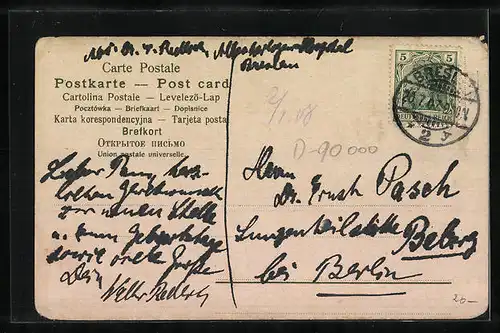 Allerheiligen-Hospital
Breslau
Carte Postale
Postkarte — Post card
Cartolina Postale — Levelező-Lap
Pocztówka — Briefkaart — Dopisnice
Karta korespondencyjna — Tarjeta posta
Brefkort
ОТКРЫТОЕ ПИСЬМО
Union postale universelle.
5 5
BRESL
2
D-90 000
Lieber Paul, herz-
lichen Glückwunsch
zur neuen Stelle
u. zum Geburtstage
sowie viele Grüße
Dein
Herrn
Dr. Ernst Pasch
Lungenheilstätte
Belzig
bei Berlin
20-